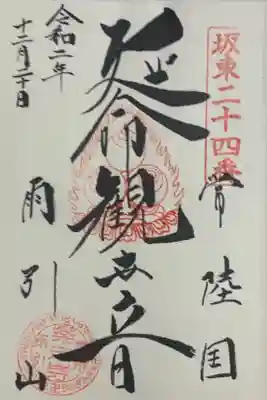 坂東二十四番
常陸国
延命観世音
雨引山
令和二年
十二月二十日